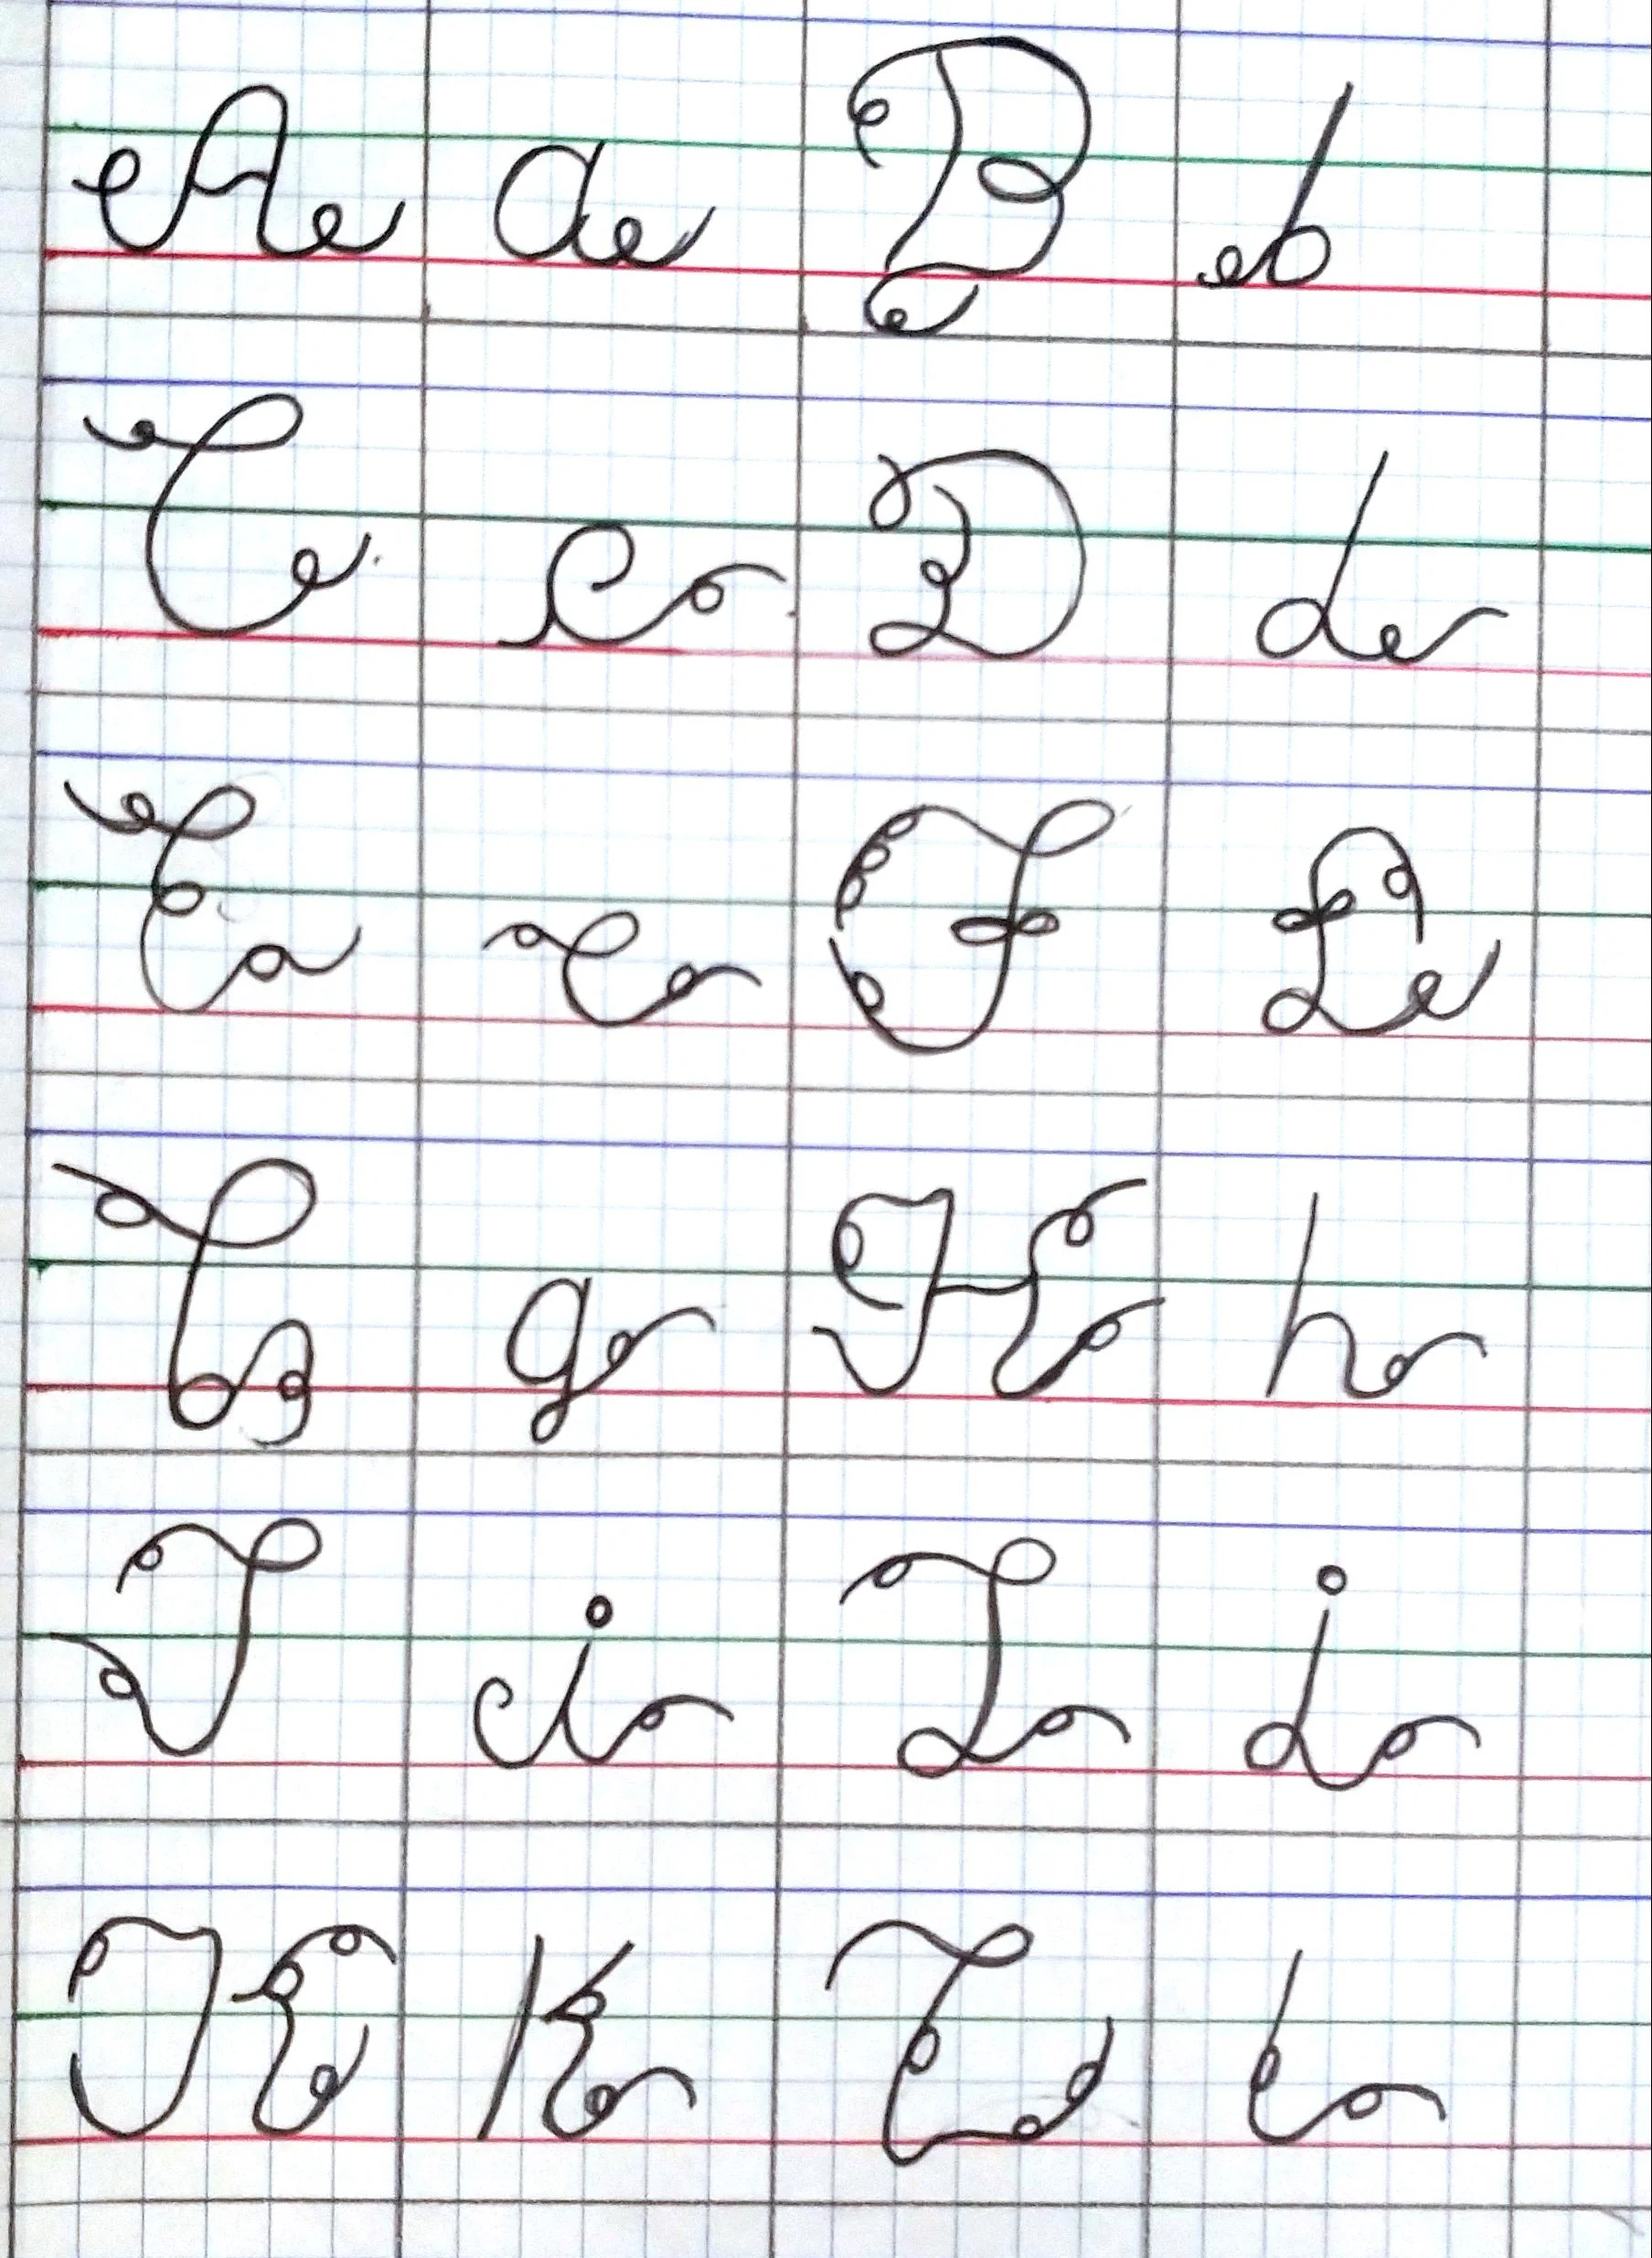 A a B b
C c D d
E e F f
G g H h
I i J j
K k L l